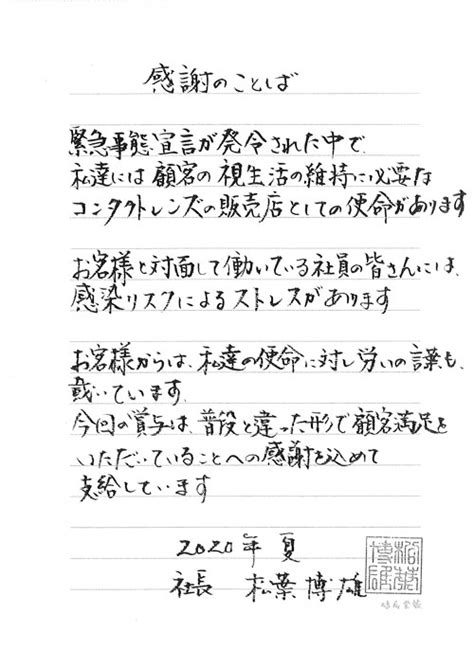 感謝のことば
緊急事態宣言が発令された中で、
私達には顧客の視生活の維持に必要な
コンタクトレンズの販売店としての使命があります
お客様と対面して働いている社員の皆さんには、
感染リスクによるストレスがあります
お客様からは、私達の使命に対し労いの言葉も、
戴いています。
今回の賞与は、普段と違った形で顧客満足を
いただいていることへの感謝を込めて
支給しています
2020年 夏
社長 松葉 博雄
松葉博雄